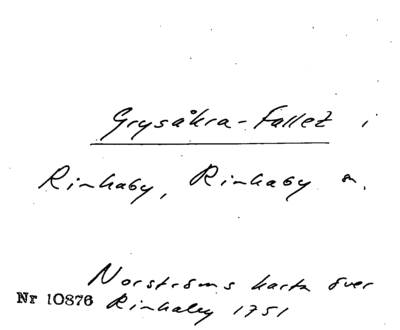 Grysåkra-Fallet i
Rinkaby, Rinkaby sn.
Norströms karta över
Nr 10876 Rinkaby 1751